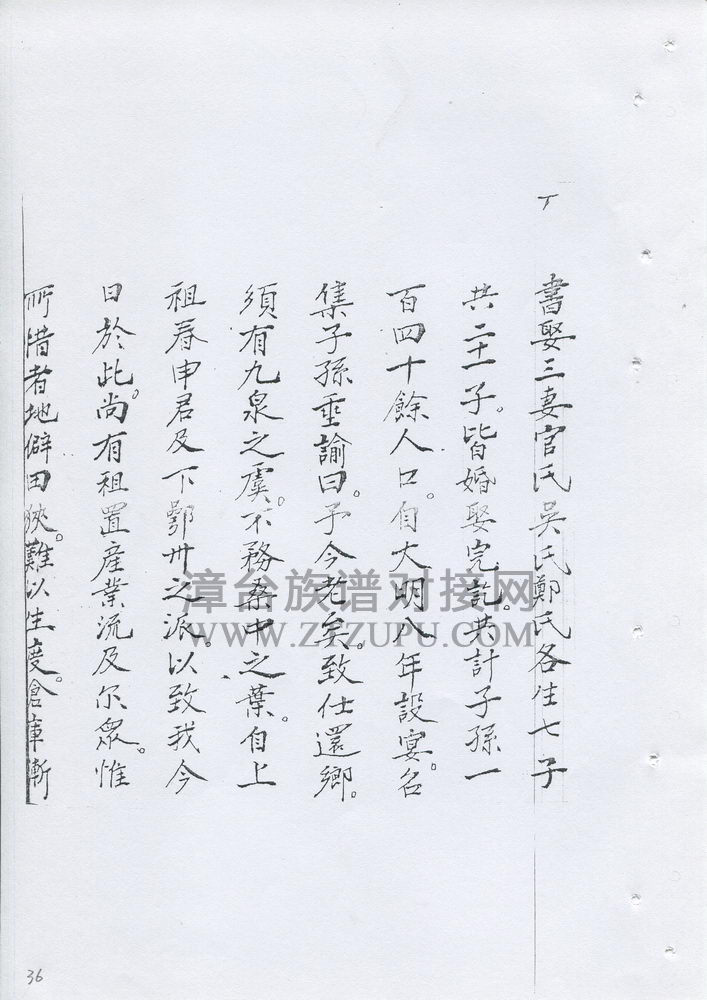 書娶三妻官氏吳氏鄭氏各生七子
共二十一子。皆婚娶完訖。共計子孫一
百四十餘人口。自大明八年設宴。名
集子孫垂諭曰。予今老矣。致仕還鄉。
須有九泉之虞。不務桑中之葉。自上
祖春申君及下鄂州之派。以致我今
日於此。尚有祖置產業流及尔眾。惟
所惜者地僻田狹。難以生度。倉庫漸
漳台族谱对接网
WWW.ZTZUPU.COM
36